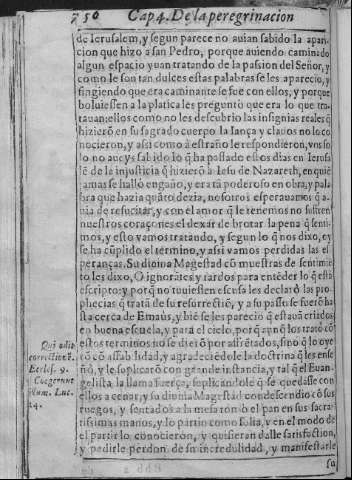 750 Cap 4. De la peregrinacion
de Ierusalem, y segun parece no auian sabido la apari
cion que hizo a san Pedro, porque auiendo caminado
algun espacio yuan tratando de la passion del Señor, y
como le son tan dulces estas palabras se les aparecio, y
fingiendo que era caminante se fue con ellos, y porque
boluiessen a la platica les preguntò que era lo que tra-
tauan: ellos como no les descubrio las insignias reales q̃
hizierõ, en su sagrado cuerpo la lança y clauos no lo co
nocieron, y assi como à estraño le respondieron, vos so
lo no aueys sabido lo q̃ ha passado estos dias en Ierusa
lẽ de la injusticia q̃ hizierõ à Iesu de Nazareth, en quiẽ
jamas se hallò engaño, y era tã poderoso en obra, y pala
bra que hazia quãto dezia, nosotros esperauamos q̃ a-
uia de resucitar, y con el amor q̃ le tenemos no sufren
nuestros coraçones el dexar de brotar la pena q̃ senti-
mos, y esto vamos tratando, y segun lo q̃ nos dixo, oy
se ha cũplido el termino, y assi vamos perdidas las es
peranças. Su diuina Magestad cõ muestras de sentimiẽ
to les dixo, O ignorãtes y tardos para entẽder lo q̃ està
escripto: y porq̃ no tuuiessen escusa les declarò las pro
phecias q̃ tratã de su resurrectiõ, y a su passo se fuerõ ha
sta cerca de Emaùs, y biẽ se les parecio q̃ estauã criados
en buena escuela, y para el cielo, porq̃ aũnq̃ los tratò cõ
estos terminos no se dierõ por afrẽtados, sino q̃ lo oyẽ
rõ cõ affabilidad, y agradeciẽdole la doctrina q̃ les ense
ñò, y le suplicarõ con grande instancia, y tal q̃ el Euan-
gelista la llama fuerça, suplicãdole q̃ se quedasse con
ellos a cenar, y su diuina Magestad condescendio cõ sus
ruegos, y sentados a la mesa tomò el pan en sus sacra-
tissimas manos, y lo partio como solia, y en el modo de
el partirlo conocieron, y quisieran dalle satisfaction,
y pedirle perdon de su incredulidad, y manifestarle
su
Qui odit
correctionẽ.
Eccles. 9.
Coegerunt
illum. Luc.
24.